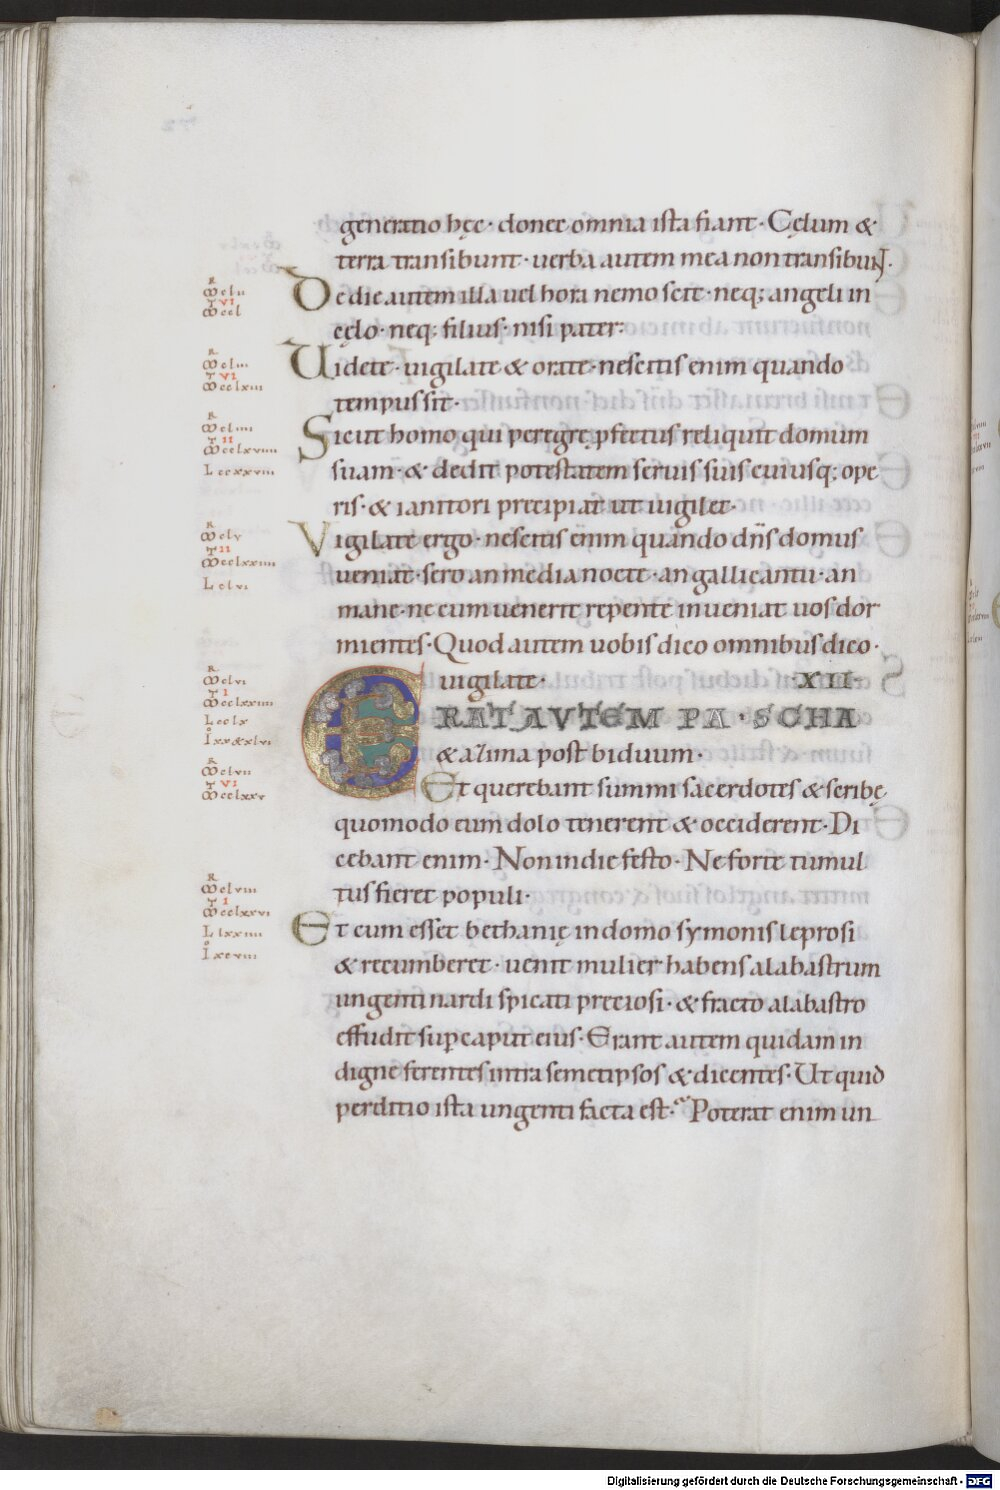 generatio hęc · donec omnia ista fiant · Cęlum &
terra transibunt · uerba autem mea non transibunt ·
De die autem illa uel hora nemo scit · neq; angeli in
cęlo · neq; filius · nisi pater ·
Uidete · uigilate & orate · nescitis enim quando
tempus sit ·
Sicut homo qui peregrę pfectus reliquit domum
suam · & dedit potestatem seruis suis cuiusq; ope
ris · & ianitori precipiat ut uigilet ·
Vigilate ergo · nescitis enim quando dns domus
ueniat · sero an media nocte · an galli cantu · an
mane · ne cum uenerit repente inueniat uos dor
mientes · Quod autem uobis dico omnibus dico ·
uigilate · ·XII·
ERAT AVTEM PASCHA
& azima post biduum ·
Et querebant summi sacerdotes & scribę
quomodo eum dolo tenerent & occiderent · Di
cebant enim · Non in die festo · Ne forte tumul
tus fieret populi ·
Et cum esset bethanię in domo symonis leprosi
& recumberet · uenit mulier habens alabastrum
ungenti nardi spicati preciosi · & fracto alabastro
effudit sup caput eius · Erant autem quidam in
digne ferentes intra semetipsos & dicentes · Ut quid
perditio ista ungenti facta est · Poterat enim un
Digitalisierung gefördert durch die Deutsche Forschungsgemeinschaft - DFG